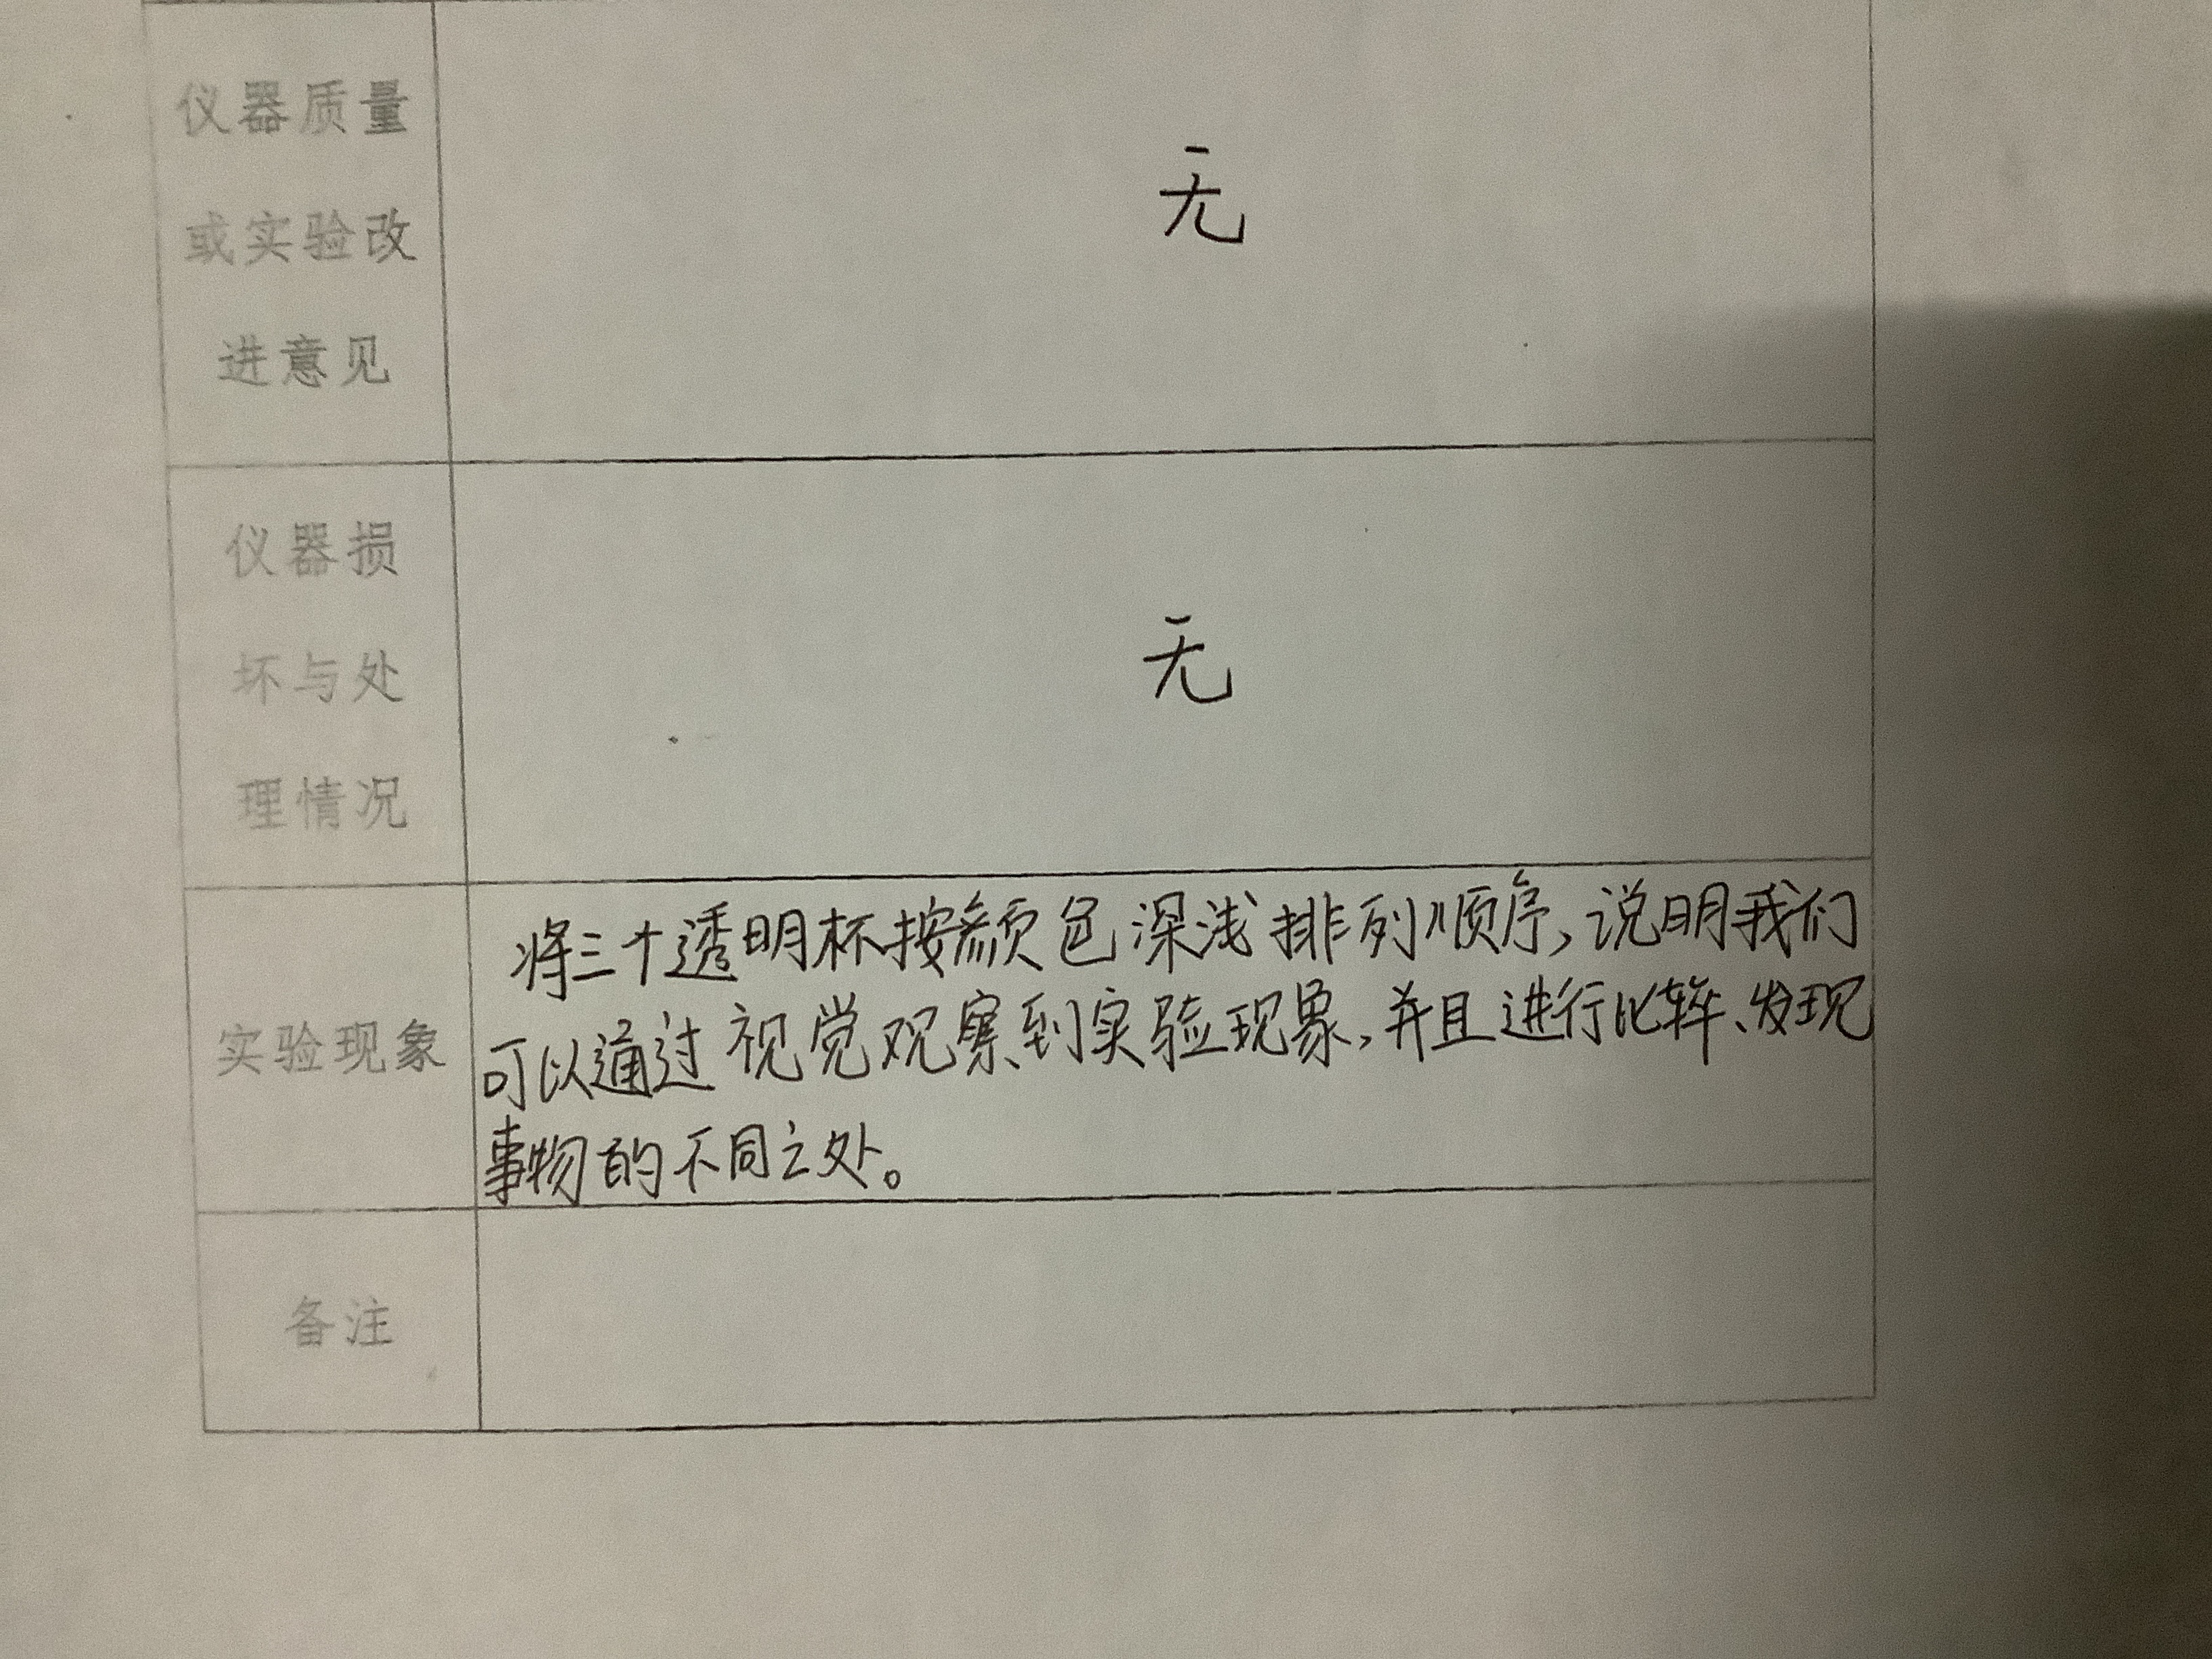 仪器质量
或实验改
进意见
无
仪器损
坏与处
理情况
无
实验现象
将三个透明杯按颜色深浅排列顺序,说明我们
可以通过视觉观察到实验现象,并且进行比较、发现
事物的不同之处。
备注